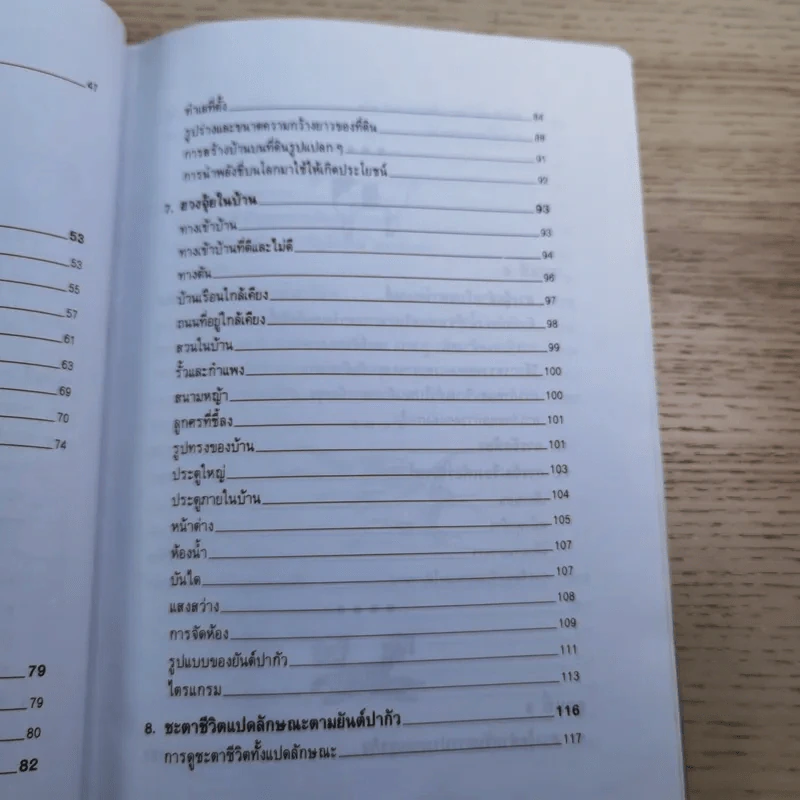 47
53
53
55
57
61
63
69
70
74
79
79
80
82
ทำเลที่ตั้ง
รูปร่างและขนาดความกว้างยาวของที่ดิน
การสร้างบ้านบนที่ดินรูปแปลก ๆ 91
การนำพลังชี่บนโลกมาใช้ให้เกิดประโยชน์
7. ฮวงจุ้ยในบ้าน 93
ทางเข้าบ้าน 93
ทางเข้าบ้านที่ดีและไม่ดี 94
ทางตัน 96
บ้านเรือนใกล้เคียง 97
ถนนที่อยู่ใกล้เคียง 98
สวนในบ้าน 99
รั้วและกำแพง 100
สนามหญ้า 100
ลูกศรที่ชี้ลง 101
รูปทรงของบ้าน 101
ประตูใหญ่ 103
ประตูภายในบ้าน 104
หน้าต่าง 105
ห้องน้ำ 107
บันได 107
แสงสว่าง 108
การจัดห้อง 109
รูปแบบของยันต์ปากัว 111
ไตรแกรม 113
8. ชะตาชีวิตแปดลักษณะตามยันต์ปากัว 116
การดูชะตาชีวิตทั้งแปดลักษณะ 117